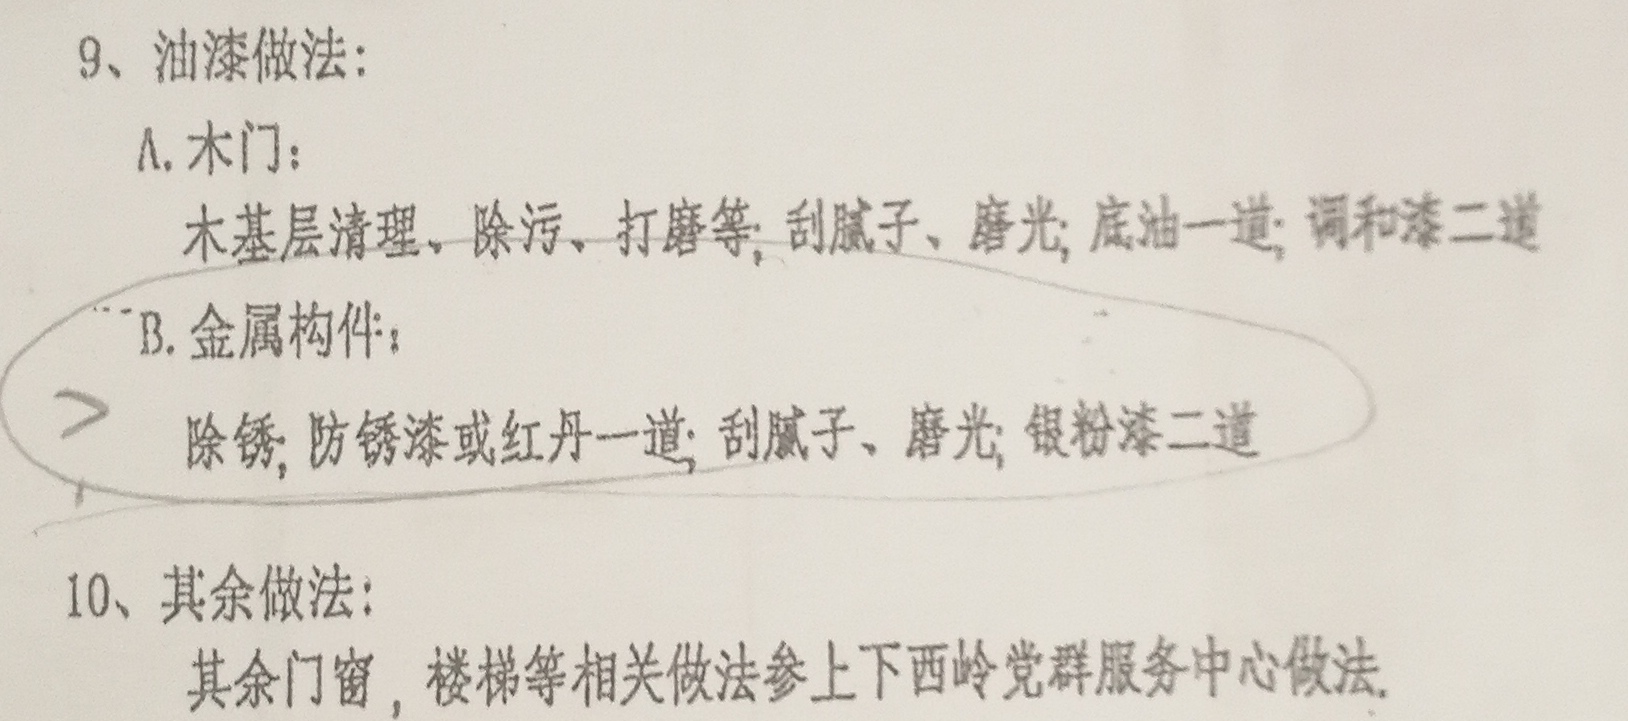 9、油漆做法:
A.木门:
木基层清理、除污、打磨等;刮腻子、磨光;底油一道;调和漆二道
B.金属构件:
除锈;防锈漆或红丹一道;刮腻子、磨光;银粉漆二道
10、其余做法:
其余门窗,楼梯等相关做法参上下西岭党群服务中心做法.